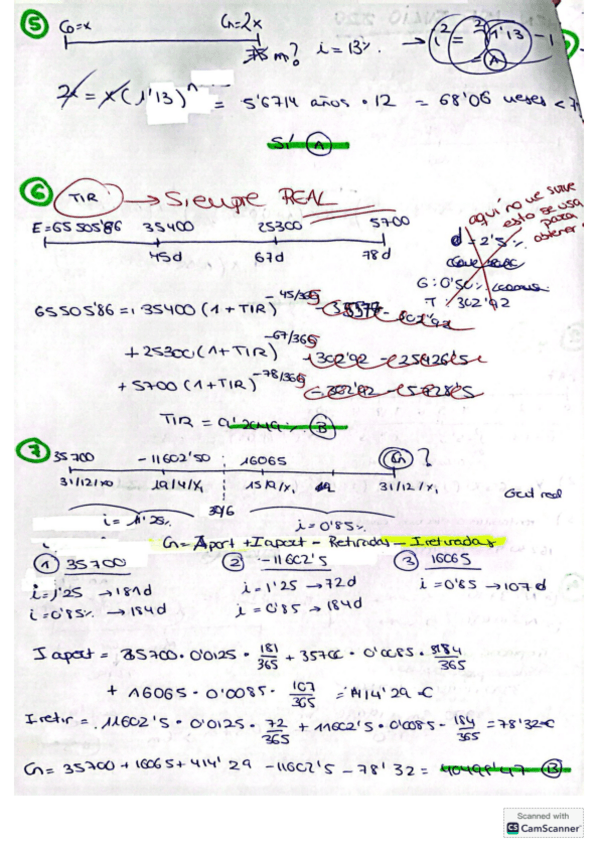 5 C₀=x Cn=2x
75 m? i=13% → i² = 2 1'13 - 1
A
2x = x(1'13)ⁿ = 5'6714 años · 12 = 68'06 meses < 7
Sí A
6 TIR → Siempre REAL
E=65505'86 35400 25300 5700
45d 67d 78d
aquí no me sirve
esto se usa
para
obtener
d=2'5%
G: 0'5%
T: 302'92
65505'86 = 35400 (1+TIR)^-45/365
+25300(1+TIR)^-67/365 +302'92 - 25426'5
+ 5700 (1+TIR)^-78/365
TIR = B
7 35700 -11602'50 16065 Cn ?
31/12/ 19/4/X₁ 31/12/X₁
30/6
i=1'25% i=0'85%
Cn= Aport + I aport - Retiradas - I retiradas
1 35700 2 -11602'5 3 16065
i=1'25 → 181d i=1'25 → 72d i=0'85 → 107d
i=0'85% → 184d i=0'85 → 184d
I aport = 35700 · 0'0125 · 181/365 + 35700 · 0'0085 · 184/365
+ 16065 · 0'0085 · 107/365 = 414'29 €
I retir = 11602'5 · 0'0125 · 72/365 + 11602'5 · 0'0085 · 184/365 = 78'32€
Cn = 35700 + 16065 + 414'29 - 11602'5 - 78'32 = 40498'47 B
Scanned with
CS CamScanner